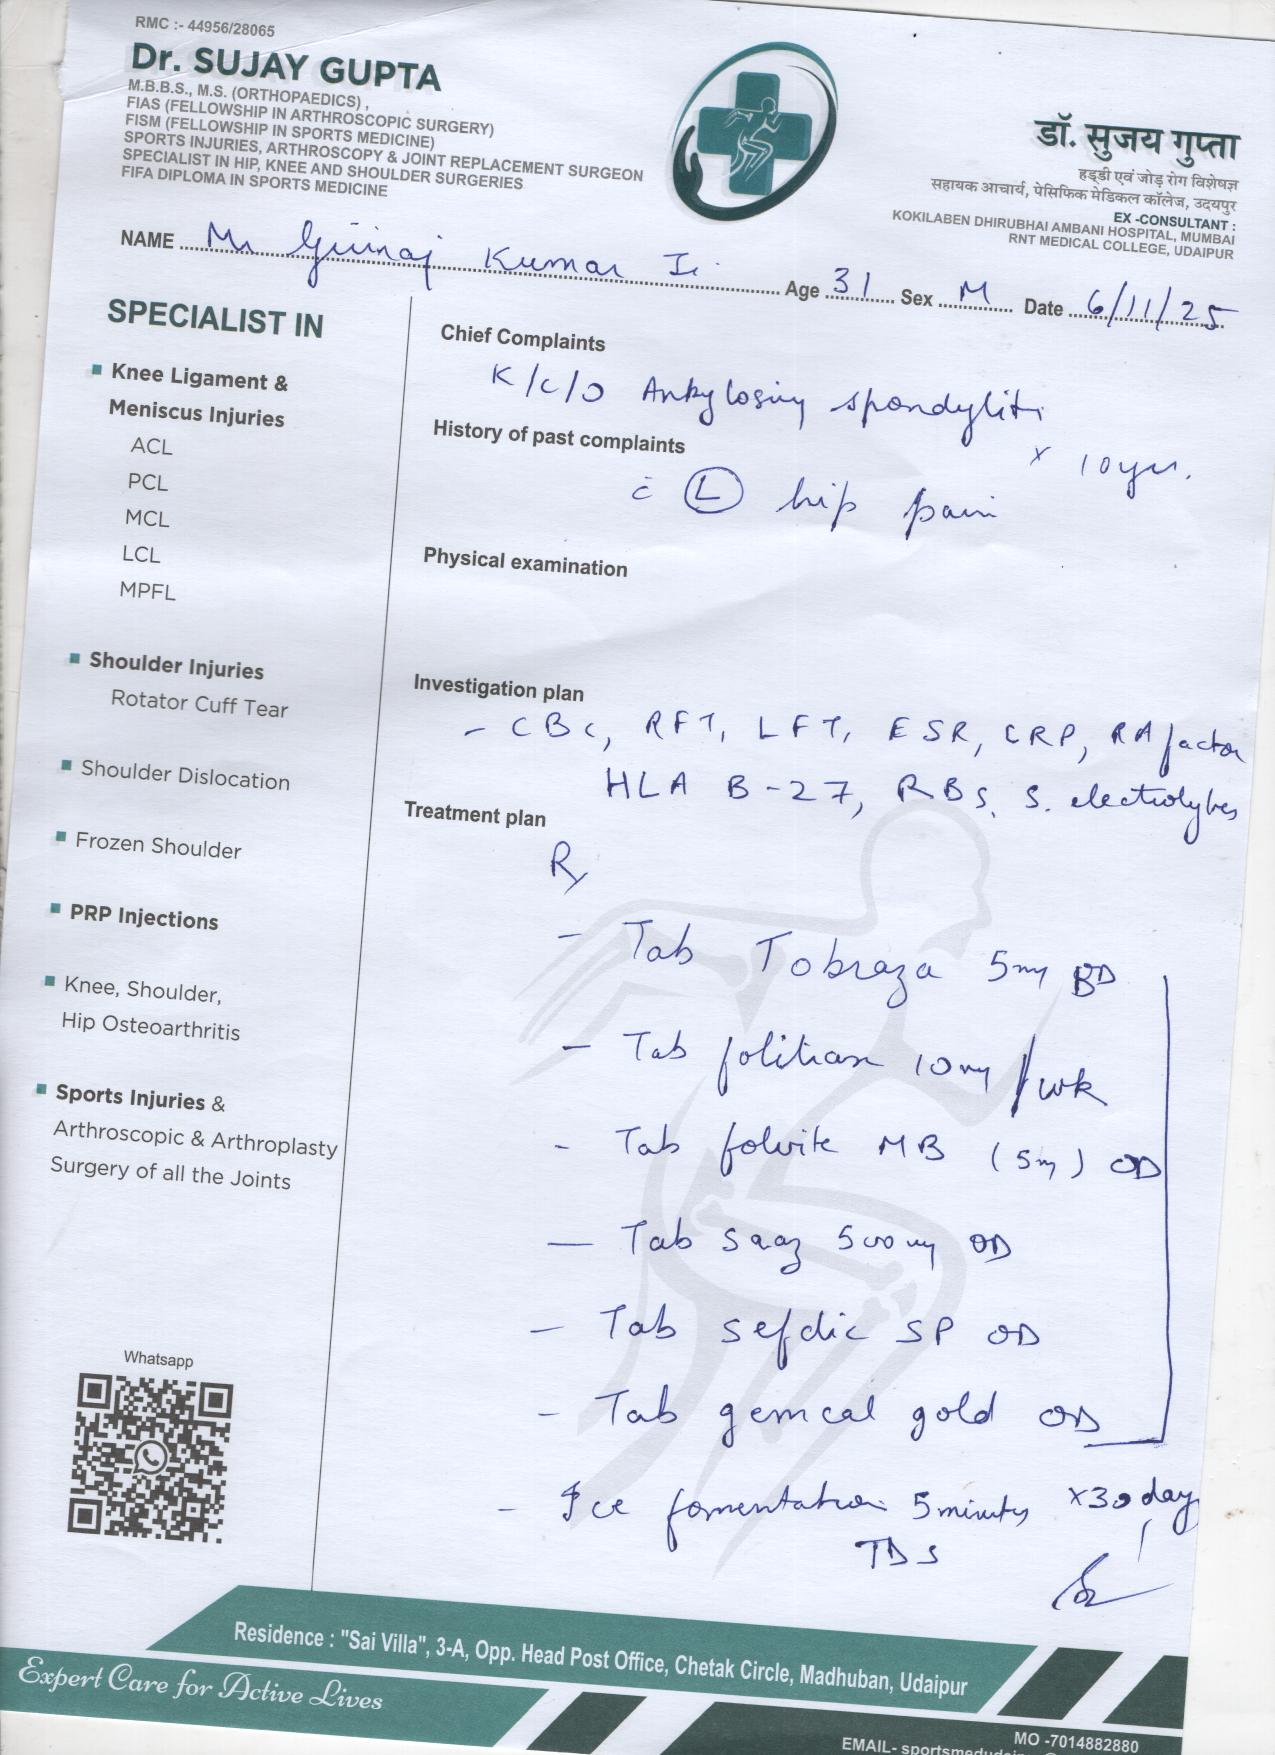 RMC :- 44956/28065
Dr. SUJAY GUPTA
M.B.B.S., M.S. (ORTHOPAEDICS) ,
FIAS (FELLOWSHIP IN ARTHROSCOPIC SURGERY)
FISM (FELLOWSHIP IN SPORTS MEDICINE)
SPORTS INJURIES, ARTHROSCOPY & JOINT REPLACEMENT SURGEON
SPECIALIST IN HIP, KNEE AND SHOULDER SURGERIES
FIFA DIPLOMA IN SPORTS MEDICINE
डॉ. सुजय गुप्ता
हड्डी एवं जोड़ रोग विशेषज्ञ
सहायक आचार्य, पेसिफिक मेडिकल कॉलेज, उदयपुर
EX -CONSULTANT :
KOKILABEN DHIRUBHAI AMBANI HOSPITAL, MUMBAI
RNT MEDICAL COLLEGE, UDAIPUR
NAME Mr Kumar Age 31 Sex M Date 6/11/25
SPECIALIST IN
Knee Ligament &
Meniscus Injuries
ACL
PCL
MCL
LCL
MPFL
Shoulder Injuries
Rotator Cuff Tear
Shoulder Dislocation
Frozen Shoulder
PRP Injections
Knee, Shoulder,
Hip Osteoarthritis
Sports Injuries &
Arthroscopic & Arthroplasty
Surgery of all the Joints
Whatsapp
Chief Complaints
K/c/o Ankylosing spondylitis
History of past complaints
x 10 yrs.
c̄ (L) hip pain
Physical examination
Investigation plan
- CBC, RFT, LFT, ESR, CRP, RA factor
HLA B-27, RBS, S. electrolytes
Treatment plan
Rx
- Tab Tobraza 5mg BD
- Tab folitrax 10mg /wk
- Tab folvite MB (5mg) OD
- Tab saaz 500mg OD
- Tab sefdic SP OD
- Tab gemcal gold OD
- Ice fomentation 5 minutes x 30 days
TDS
Residence : "Sai Villa", 3-A, Opp. Head Post Office, Chetak Circle, Madhuban, Udaipur
Expert Care for Active Lives
MO -7014882880